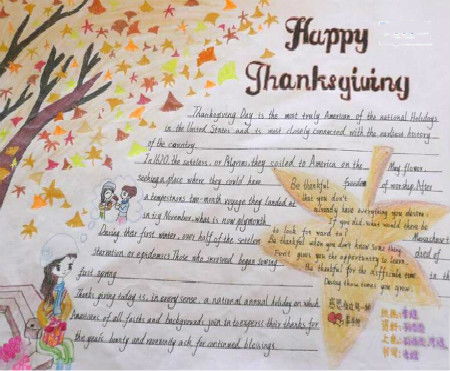 Happy
Thanksgiving
Thanksgiving Day is the most truly American of the national Holidays
in the United States and is most closely connected with the earliest history
of the country.
In 1620, the settelers, or Pilgrims, they sailed to America on the May flower,
seeking a place where they could have freedom of worship. After
a tempestuous two-month voyage they landed at
in icy November, what is now plymouth
Massachusetts
During that first winter, over half of the settlers
Starvation or epidemics. Those who survived began sowing
in the
first spring
Thanks giving today is, in every sense, a national annual holiday on which
Americans of all faiths and backgrounds join in to express their thanks for
the years' bounty and reverently ask for continued blessings.
Be thankful
that you don't
already have everything you desire.
if you did, what would there be
to look for ward to?
Be thankful when you don't know some thing
For it gives you the opportunity to learn
Be thankful for the difficule time
During those times you grow.